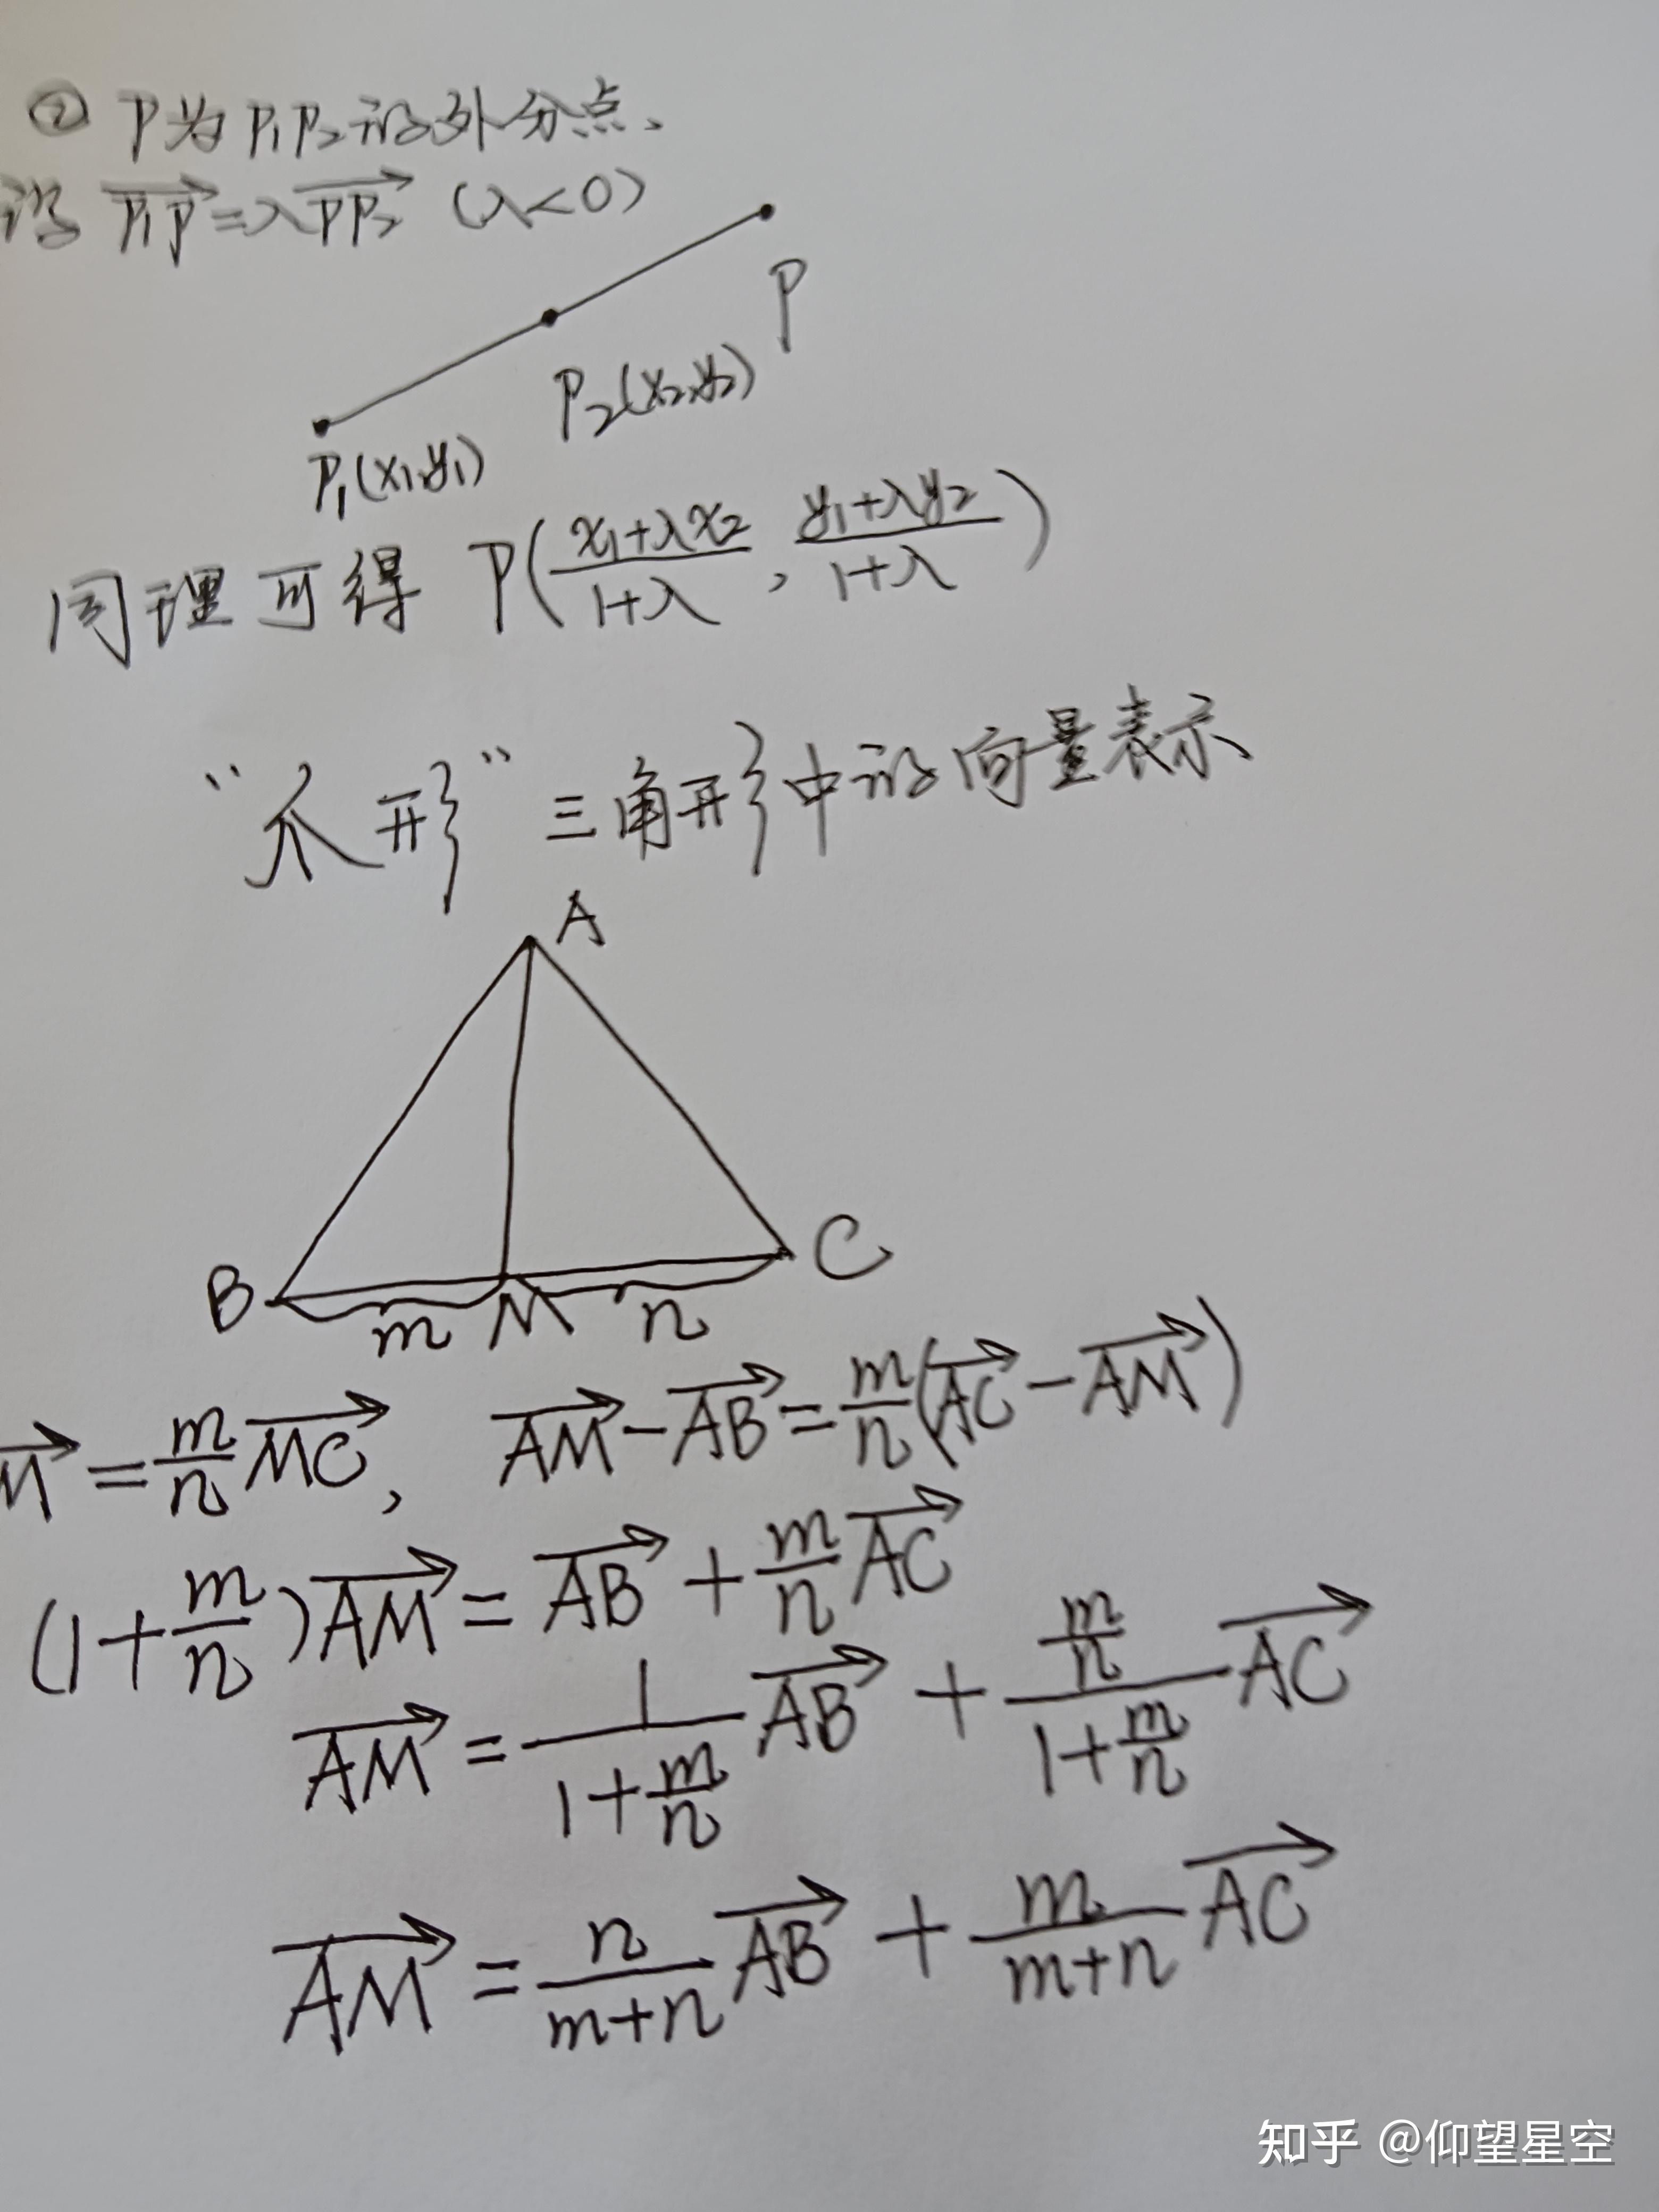 ② P为P₁P₂的外分点、
设 $\overrightarrow{P_1P}=\lambda\overrightarrow{PP_2}$ (λ<0)
P
P₂(x₂,y₂)
P₁(x₁,y₁)
同理可得 $P(\frac{x_1+\lambda x_2}{1+\lambda},\frac{y_1+\lambda y_2}{1+\lambda})$
“爪形”三角形中的向量表示
A
B
C
m M n
$\overrightarrow{M}=\frac{m}{n}\overrightarrow{MC}$, $\overrightarrow{AM}-\overrightarrow{AB}=\frac{m}{n}(\overrightarrow{AC}-\overrightarrow{AM})$
$(1+\frac{m}{n})\overrightarrow{AM}=\overrightarrow{AB}+\frac{m}{n}\overrightarrow{AC}$
$\overrightarrow{AM}=\frac{1}{1+\frac{m}{n}}\overrightarrow{AB}+\frac{\frac{m}{n}}{1+\frac{m}{n}}\overrightarrow{AC}$
$\overrightarrow{AM}=\frac{n}{m+n}\overrightarrow{AB}+\frac{m}{m+n}\overrightarrow{AC}$
知乎 @仰望星空